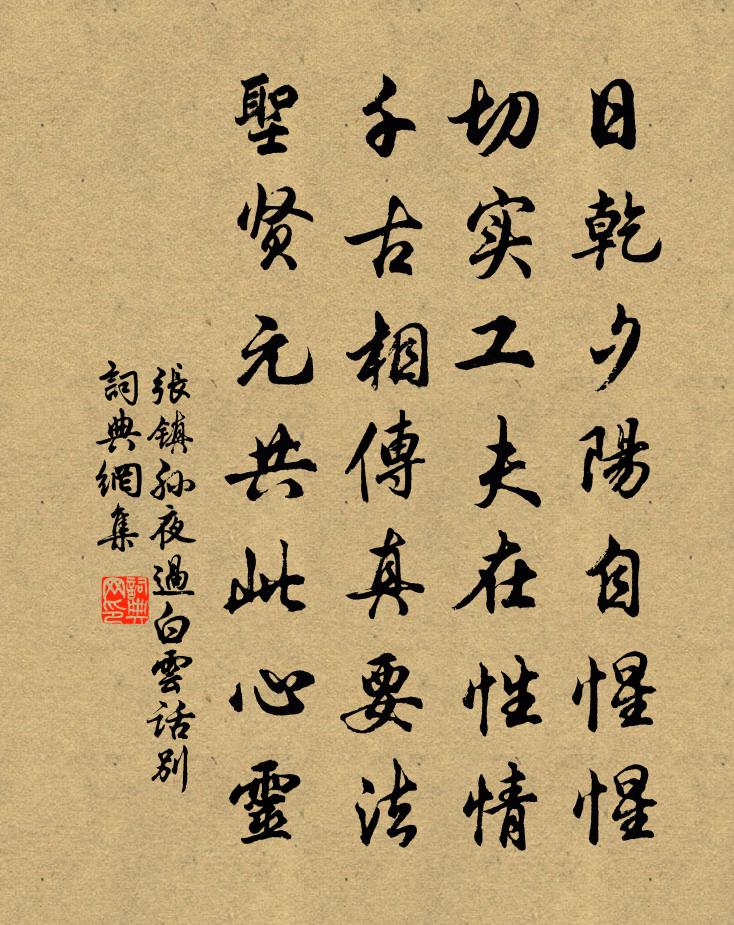 日乾夕陽自惺惺
切实工夫在性情
千古相傳真要法
聖贤元共此心靈
張鎮孙夜過白雲話别
詞典網集
詞典网印